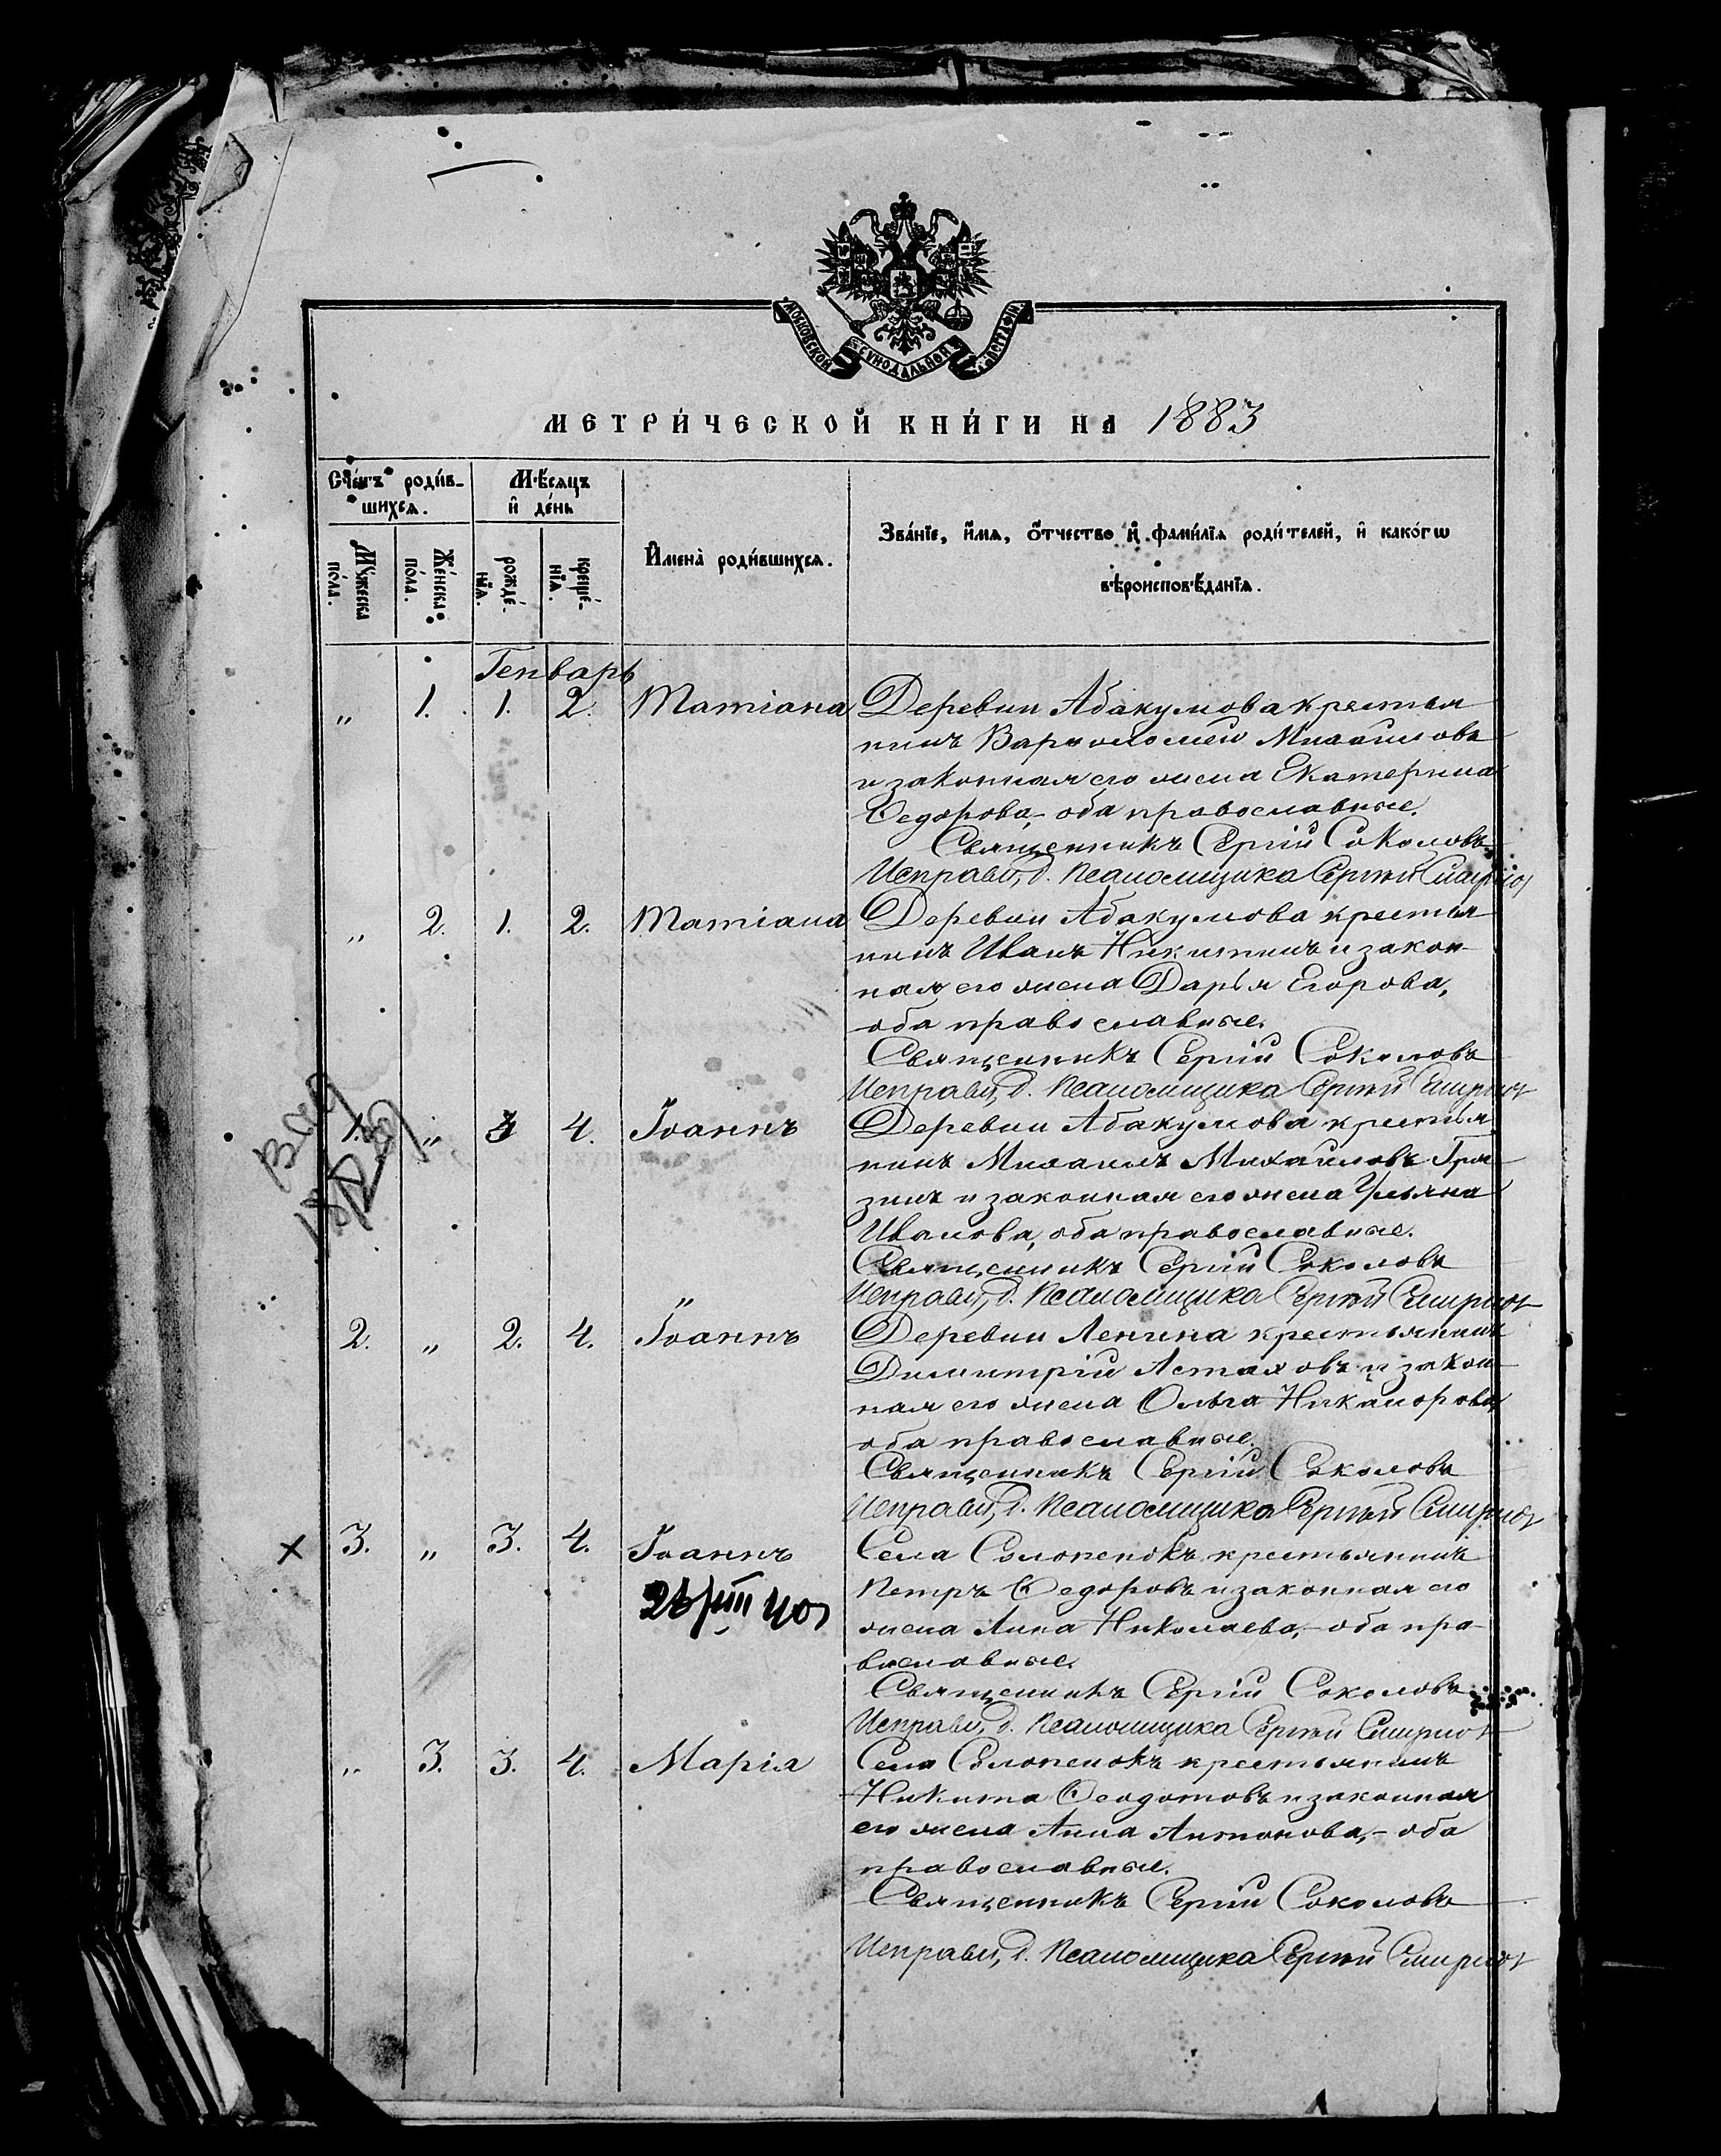 МОСКОВСКОЙ СѴНОДАЛЬНОЙ
МЕТРИ́ЧЕСКОЙ КНИ́ГИ НА 1883
Сче́тъ роди́в-
шихсѧ.
Мꙋ́жеска
по́ла.
Же́нска
по́ла.
Мѣ́сѧцъ
и҆ де́нь
рожде́-
нїѧ.
креще́-
нїѧ.
И҆мена̀ роди́вшихсѧ.
Зва́нїе, и҆́мѧ, ѻ҆́тчество и҆ фами́лїѧ роди́телей, и҆ како́гѡ
вѣроисповѣ́данїѧ.
Генварь
„ 1. 1. 2. Татіана Деревни Абакумова крестья
нинъ Варѳоломей Михаиловъ
и законная его жена Екатерина
Ѳедорова, - оба православные.
Священникъ Сергій Соколовъ
Исправл, д. Псаломщика Сергѣй Смирнов
„ 2. 1. 2. Татіана Деревни Абакумова крестья
нинъ Иванъ Никитинъ и закон
ная его жена Дарья Егорова,
оба православные.
Священникъ Сергій Соколовъ
Исправл, д. Псаломщика Сергѣй Смирнов
1. „ 3 4. Іоаннъ Деревни Абакумова крестья
нинъ Михаилъ Михаиловъ Гря
зинъ и законная его жена Ульяна
Иванова, оба православные.
Священникъ Сергій Соколовъ
Исправл, д. Псаломщика Сергѣй Смирнов
2. „ 2. 4. Іоаннъ Деревни Ленина крестьянинъ
Димитрій Астаховъ и закон
ная его жена Ольга Никанорова
оба православные.
Священникъ Сергій Соколовъ
Исправл, д. Псаломщика Сергѣй Смирнов
× 3. „ 3. 4. Іоаннъ Села Солопенокъ крестьянинъ
Петръ Ѳедоровъ и законная его
жена Анна Николаева, - оба пра
вославные.
Священникъ Сергій Соколовъ
Исправл, д. Псаломщика Сергѣй Смирнов
„ 3. 3. 4. Марія Села Солопенокъ крестьянинъ
Никита Ѳеодотовъ и законная
его жена Анна Антонова, - оба
православные.
Священникъ Сергій Соколовъ
Исправл, д. Псаломщика Сергѣй Смирнов